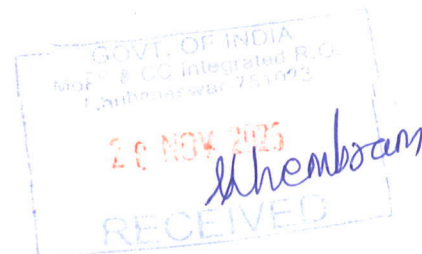 GOVT. OF INDIA
MoEF & CC Integrated R.O.
Bhubaneswar 751023
NOV
RECEIVED